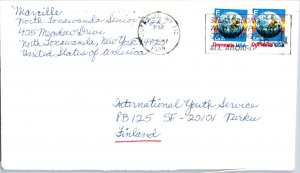 Marcille
North Tonawanda Senior
405 Meadow Drive
North Tonawanda, New York
United States of America
PM
E
E
Domestic USA
Domestic USA
International Youth Service
PB 125 SF-20101 Turku
Finland